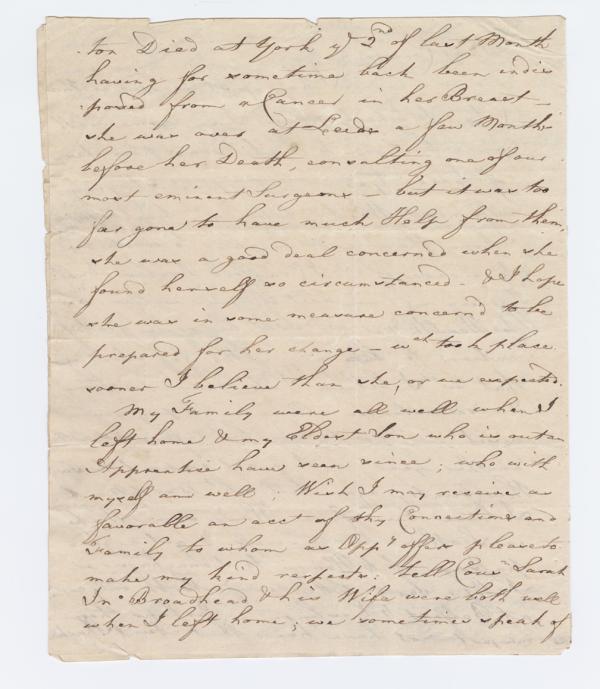 ton Died at York ye 2nd of last Month
having for sometime back been indis
:posed from a Cancer in her Breast –
she was over at Leeds a few Months
before her Death, consulting one of our
most eminent Surgeons – but it was too
far gone to have much Help from them,
she was a good deal concerned when she
found herself so circumstanced – & I hope
she was in some measure concern'd to be
prepared for her change – wch took place
sooner I believe than she, or we expected.
My Family were all well when I
left home & my Eldest Son who is out an
Apprentice have seen since; who with
myself am well; Wish I may receive as
favorable an acct of thy Connections and
Family to whom as Oppy offers please to
make my kind respects: tell Cousn Sarah
Jno Broadhead & his Wife were both well
when I left home; we sometimes speak of